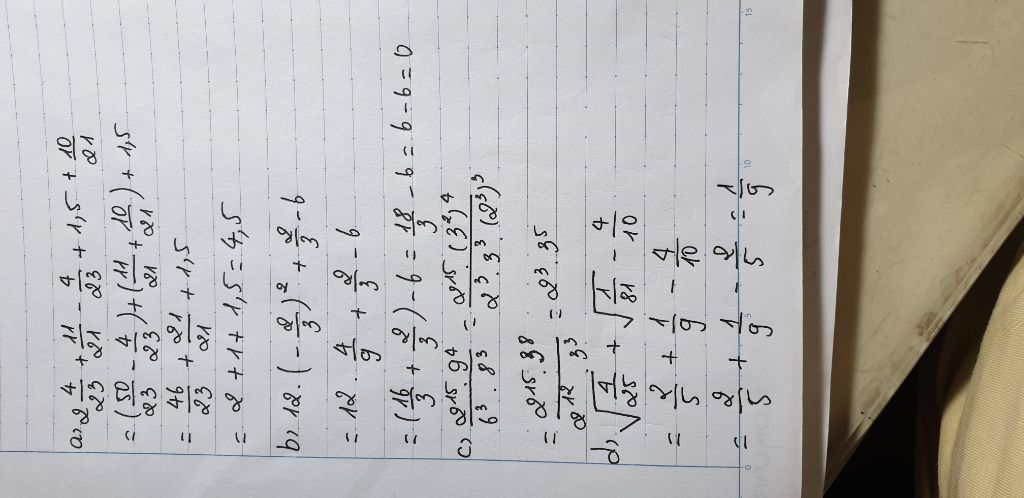 a, 2 4/23 + 11/21 - 4/23 + 1,5 + 10/21
= (50/23 - 4/23) + (11/21 + 10/21) + 1,5
= 46/23 + 21/21 + 1,5
= 2 + 1 + 1,5 = 4,5
b, 12.(-2/3)² + 2/3 - 6
= 12 . 4/9 + 2/3 - 6
= (16/3 + 2/3) - 6 = 18/3 - 6 = 6 - 6 = 0
c, 2¹⁵.9⁴/6³.8³ = 2¹⁵.(3²)⁴/2³.3³.(2³)³
= 2¹⁵.3⁸/2¹².3³ = 2³.3⁵
d, √4/25 + √1/81 - 4/10
= 2/5 + 1/9 - 4/10
= 2/5 + 1/9 - 2/5 = 1/9
0 5 10 15